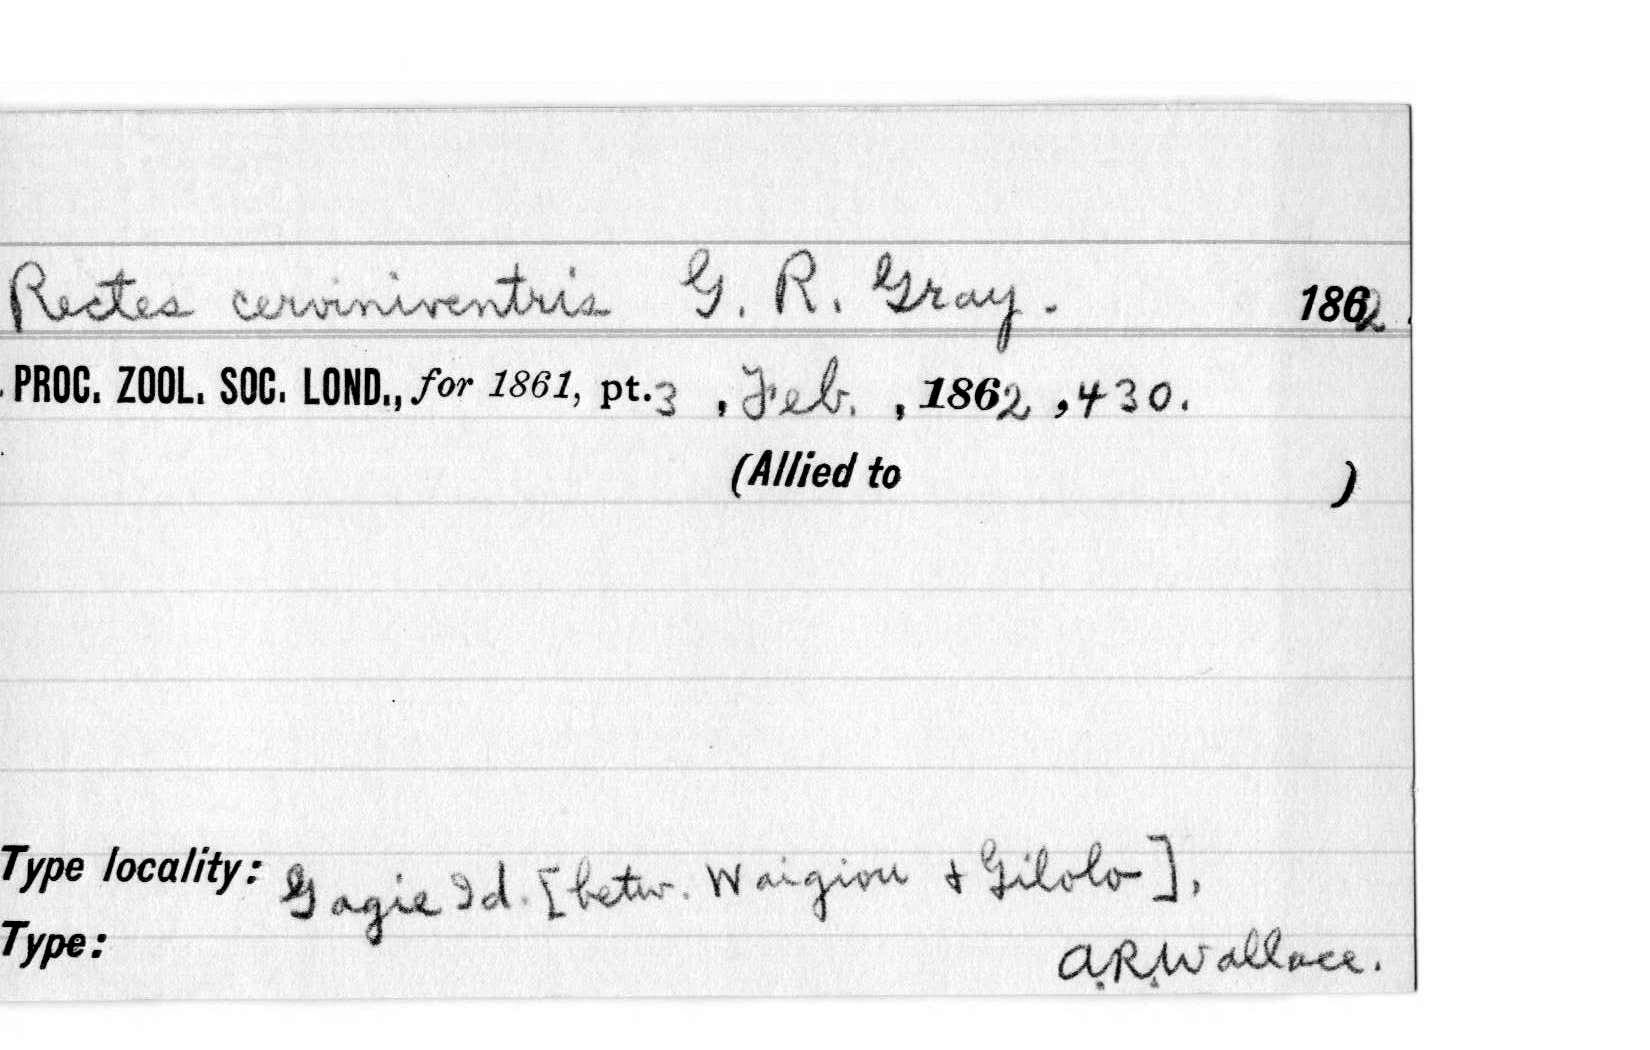 Rectes cerviniventris G. R. Gray. 1862.
PROC. ZOOL. SOC. LOND., for 1861, pt. 3, Feb., 1862, 430.
(Allied to )
Type locality: Gagie Id. [betw. Waigiou & Gilolo],
Type: A.R. Wallace.